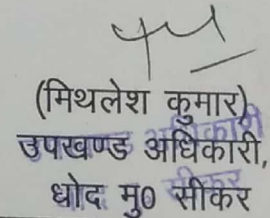 (मिथलेश कुमार)
उपखण्ड अधिकारी,
धोद मु0 सीकर